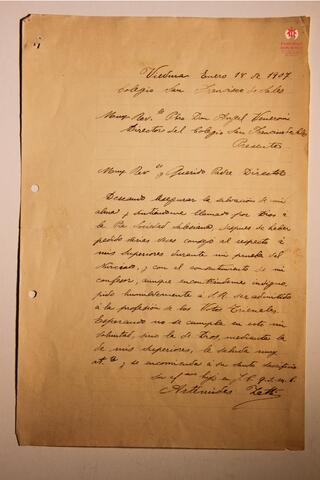 Viedma Enero 18 de 1907
Colegio San Francisco de Sales
Muy Rev.do Pbro Don Angel Veneroni
Director del Colegio San Francisco de Sales
Presente
Muy Rev.do y Querido Padre Director
Deseando asegurar la salvación de mi
alma y sintiéndome llamado por Dios a
la Pia Sociedad Salesiana, después de haber
pedido varias veces consejo al respecto á
mis Superiores durante mi prueba del
Noviciado, y con el consentimiento de mi
confesor, aunque encontrándome indigno,
pido humildemente á S.R. ser admitido
á la profesión de los Votos Trienales.
Esperando no se cumpla en esto mi
voluntad, sino la de Dios, mediante la
de mis superiores, le saluda muy
at.te y se encomienda á su santo sacrificio
su hijo en J. C. q. s. m. b.
Artemides Zatti